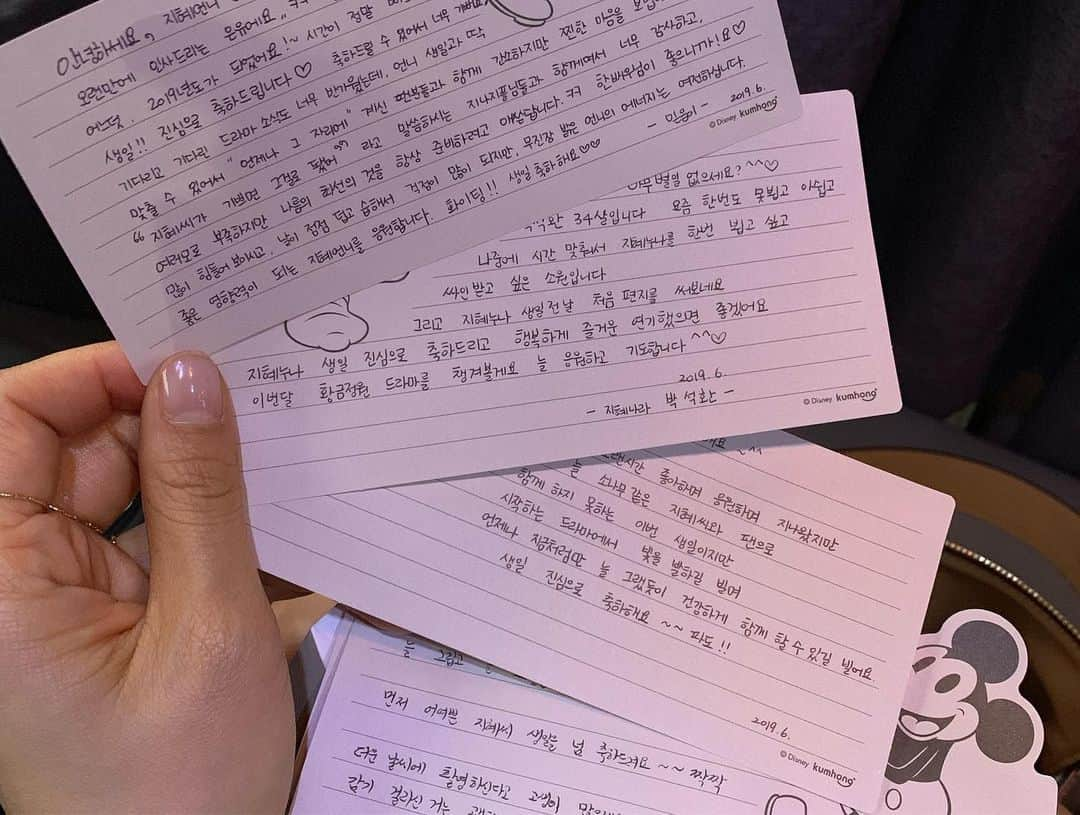 안녕하세요, 지혜언니
오랜만에 인사드리는 은유에요,, ㅋㅋ
어느덧, 2019년도가 되었어요!~ 시간이 정말
생일!! 진심으로 축하드립니다♡ 축하드릴 수 있어서 너무 기뻐요
기다리고 기다린 드라마 소식도 너무 반가웠는데, 언니 생일과 딱
맞출 수 있어서 "언제나 그 자리에" 계신 팬분들과 함께 간소하지만 찐한 마음을
"지혜씨가 기쁘면 그걸로 됐어" 라고 말씀하시는 지나지폴님들과 함께여서 너무 감사하고,
여러모로 부족하지만 나름의 최선의 것을 항상 준비하려고 애씁답니다. ㅋㅋ 한배우님이 좋으니까!요♡
많이 힘들어 보이시고, 날이 점점 덥고 습해서 걱정이 많이 되지만, 무진장 밝은 언니의 에너지는 여전하십니다.
좋은 영향력이 되는 지혜언니를 응원합니다. 화이팅!! 생일 축하해요♡♡ - 믿음이 -
2019. 6.
©Disney kumhong
별일 없으세요? ^^♡
34살입니다 요즘 한번도 못뵙고 아쉽고
나중에 시간 맞춰서 지혜누나를 한번 뵙고 싶고
싸인받고 싶은 소원입니다
그리고 지혜누나 생일 전날 처음 편지를 써보네요
지혜누나 생일 진심으로 축하드리고 행복하게 즐거운 연기했으면 좋겠어요
이번달 황금정원 드라마를 챙겨볼게요 늘 응원하고 기도합니다 ^^♡
2019. 6.
- 지혜나라 박석환 -
©Disney kumhong
좋아하며 응원하며 지나왔지만
늘 소나무 같은 지혜씨와 팬으로
함께 하지 못하는 이번 생일이지만
시작하는 드라마에서 빛을 발하길 빌며
언제나 지금처럼만 늘 그랬듯이 건강하게 함께 할 수 있길 빌어요.
생일 진심으로 축하해요 ~~ 파도!!
2019. 6.
©Disney kumhong
늘 그립고
먼저 어여쁜 지혜씨 생일을 넘 축하드려요 ~~ 짝짝
더운 날씨에 촬영하신다고 고생이
감기 걸리신 거는